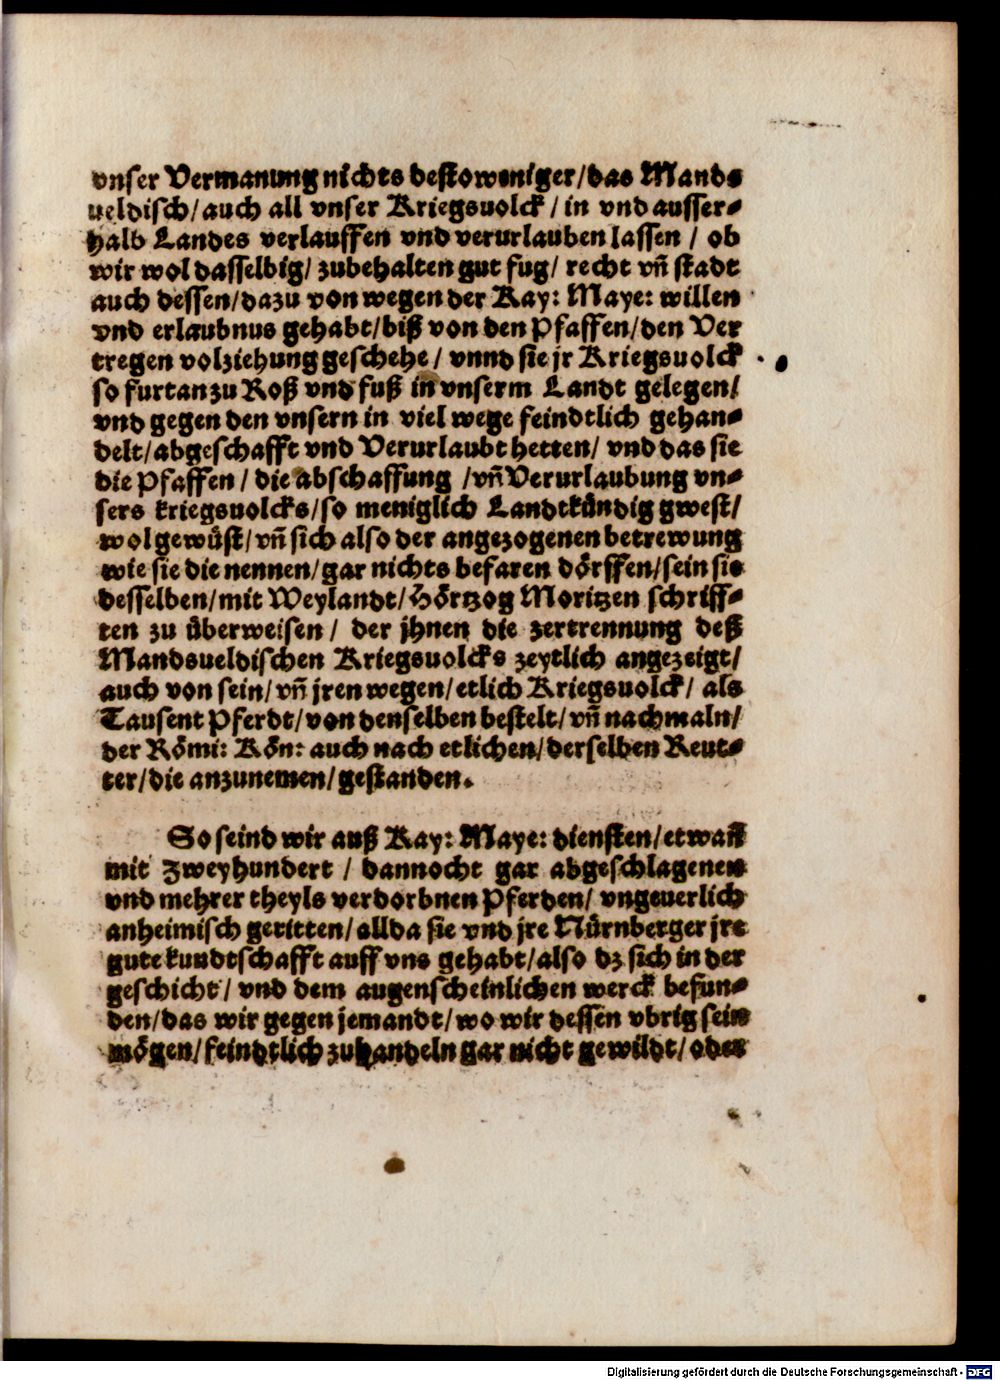 vnser Vermanung nichts destoweniger/das Mands
ueldisch/auch all vnser Kriegsuolck/in vnd ausser-
halb Landes verlauffen vnd verurlauben lassen/ ob
wir wol dasselbig/ zubehalten gut fug/ recht vñ stadt
auch dessen/dazu von wegen der Kay: Maye: willen
vnd erlaubnus gehabt/biß von den Pfaffen/den Ver
tregen volziehung geschehe/ vnnd sie jr Kriegsuolck
so furtan zu Roß vnd fuß in vnserm Landt gelegen/
vnd gegen den vnsern in viel wege feindtlich gehan-
delt/abgeschafft vnd Verurlaubt hetten/ vnd das sie
die Pfaffen/ die abschaffung /vñ Verurlaubung vn-
sers kriegsuolcks/so meniglich Landtkündig gwest/
wol gewüst/vñ sich also der angezogenen betrewung
wie sie die nennen/gar nichts befaren dörffen/sein sie
desselben/mit Weylandt/Hörtzog Moritzen schriff-
ten zu überweisen/ der jhnen die zertrennung deß
Mandsueldischen Kriegsuolcks zeytlich angezeigt/
auch von sein/vñ jren wegen/etlich Kriegsuolck/ als
Tausent Pferdt/von denselben bestelt/vñ nachmaln/
der Römi: Kön: auch nach etlichen/derselben Reut-
ter/die anzunemen/gestanden.
So seind wir auß Kay: Maye: diensten/etwañ
mit Zweyhundert / dannocht gar abgeschlagenen
vnd mehrer theyls verdorbnen Pferden/ vngeuerlich
anheimisch geritten/allda sie vnd jre Nürnberger jre
gute kundtschafft auff vns gehabt/also dz sich in der
geschicht/ vnd dem augenscheinlichen werck befun-
den/das wir gegen jemandt/wo wir dessen vbrig sein
mögen/feindtlich zuhandeln gar nicht gewildt/oder
Digitalisierung gefördert durch die Deutsche Forschungsgemeinschaft - DFG